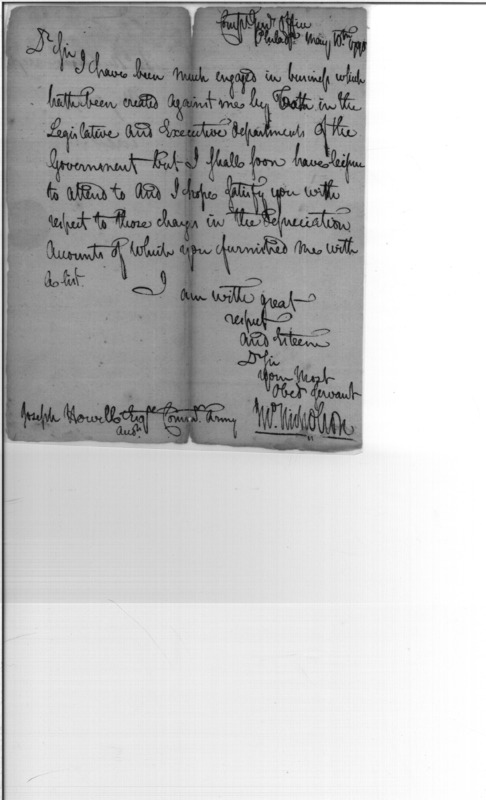 Compt Genl Office
Philada May 10th 1790
Dr Sir
I have been much engaged in business which
hath been created against me by both in the
Legislative and Executive departments of the
Government but I shall soon have leisure
to attend to and I hope satisfy you with
respect to those charges in the depreciation
accounts of which you furnished me with
a list.
I am with great
respect
and Esteem
Dr Sir
Your Most
Obed Servant
Jno. Nicholson
Joseph Howell Esqr Comr. Army